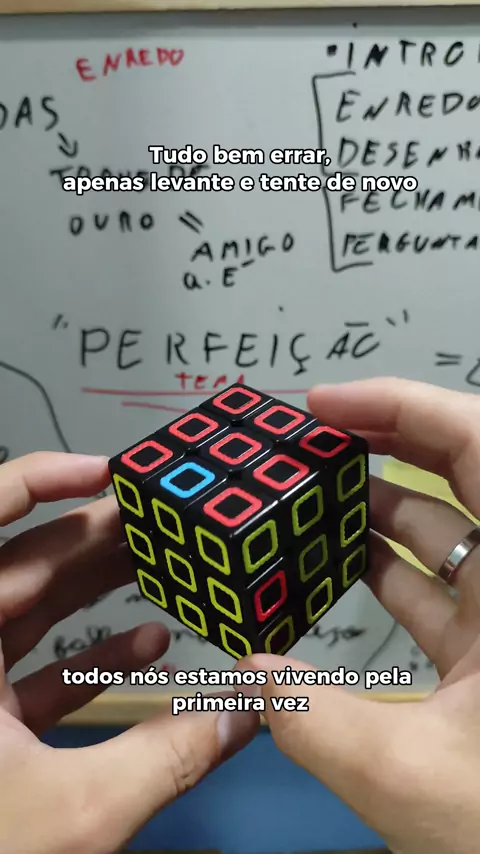 ENREDO
"INTRO
DAS
ENREDO
Tudo bem errar,
DESENH
apenas levante e tente de novo
FECHAM
OURO =
AMIGO
PERGUNTA
a. E
"PERFEIÇÃO" =
TEMA
todos nós estamos vivendo pela
primeira vez